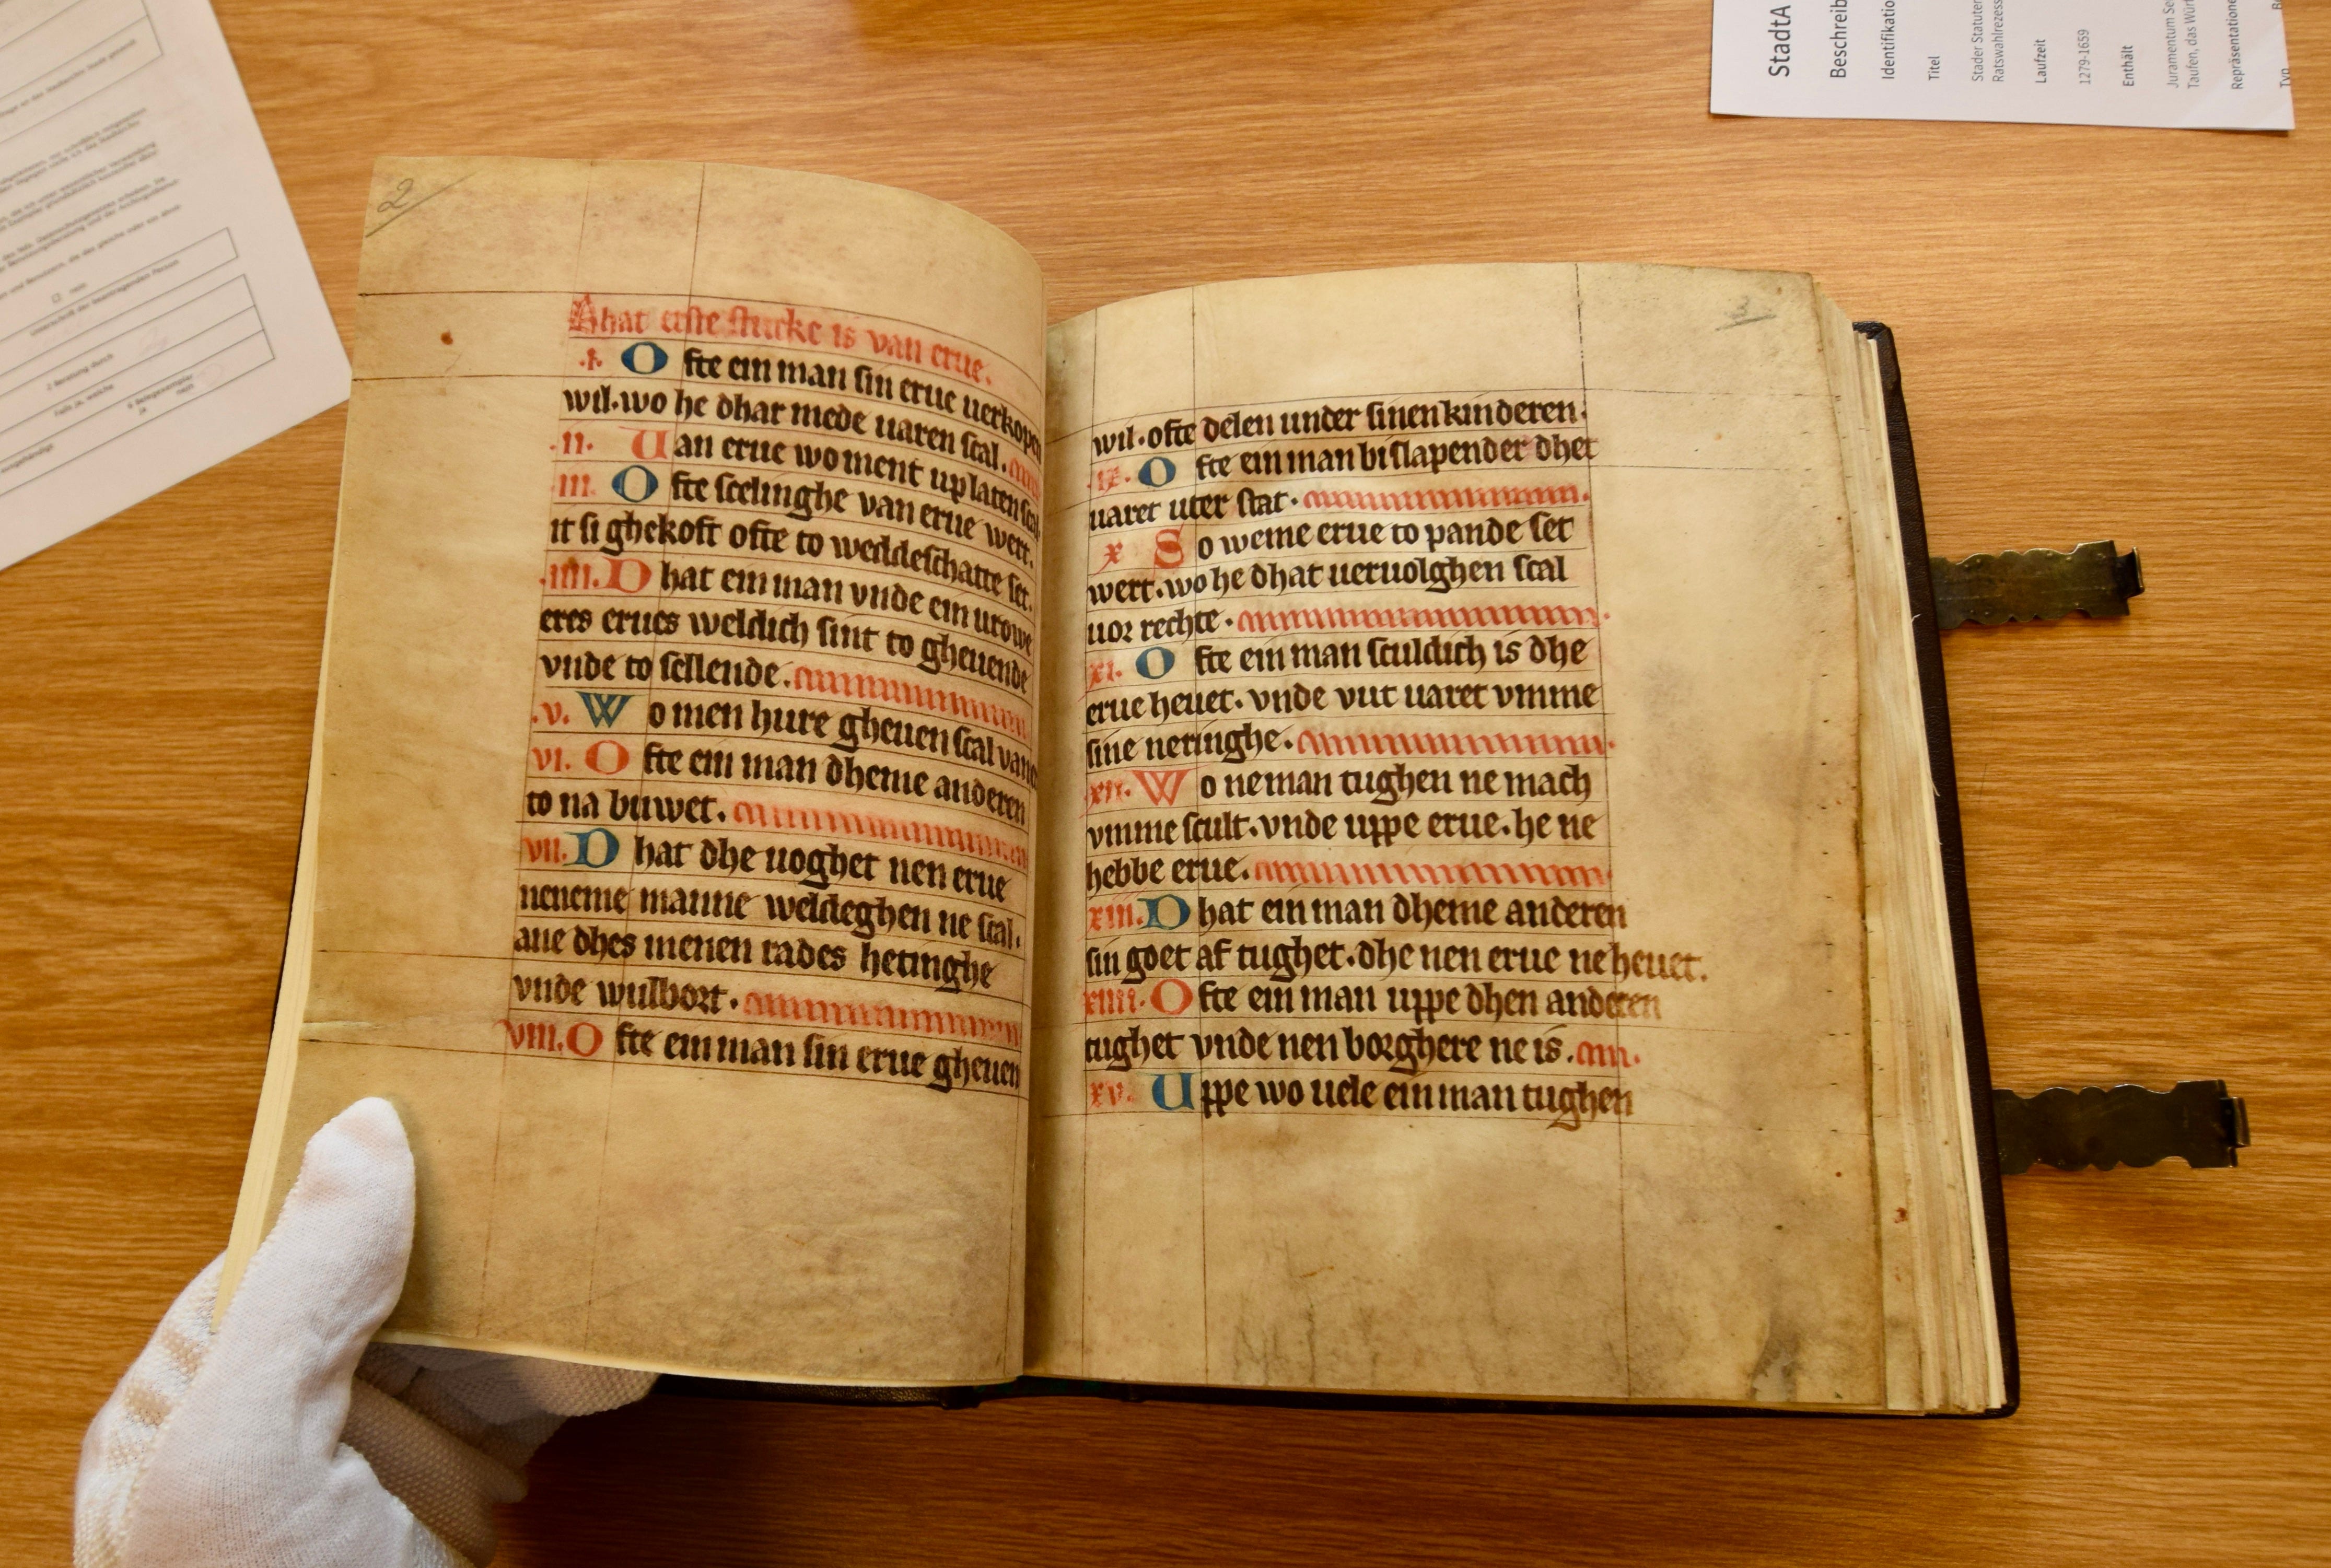 2
Dhat erste stucke is van erue.
.I. Ofte ein man sin erue uerkopen
wil. wo he dhar mede uaren scal.
.II. Uan erue wo ment uplaten scal
III. Ofte scelinghe van erue wert.
it si ghekoft ofte to weddeschatte set.
.IIII. Dhat ein man vnde ein urowe
eres erues weldich sint to gheuende
vnde to sellende.
.V. Wo men hure gheuen scal van
VI. Ofte ein man dheme anderen
to na buwet.
VII. Dhat dhe uoghet nen erue
neneme manne weldeghen ne scal.
ane dhes menen rades hetinghe
vnde wulbort.
VIII. Ofte ein man sin erue gheuen
3
wil. ofte delen under sinen kinderen.
.IX. Ofte ein man bislapender dhet
uaret uter stat.
X So weme erue to pande set
wert. wo he dhat ueruolghen scal
uor rechte.
XI. Ofte ein man sculdich is dhe
erue heuet. vnde vut uaret vmme
sine neringhe.
XII. Wo ne man tughen ne mach
vmme scult. vnde uppe erue. he ne
hebbe erue.
XIII. Dhat ein man dheme anderen
sin goet af tughet. dhe nen erue ne heuet.
XIIII. Ofte ein man uppe dhen anderen
tughet vnde nen borghere ne is.
XV. Uppe wo uele ein man tughen
StadtA
Beschreib
Identifikatio
Titel
Stader Statuten
Ratswahlrezess
Laufzeit
1279-1659
Enthält
Juramentum Se
Taufen, das Wür
Repräsentatione
Typ